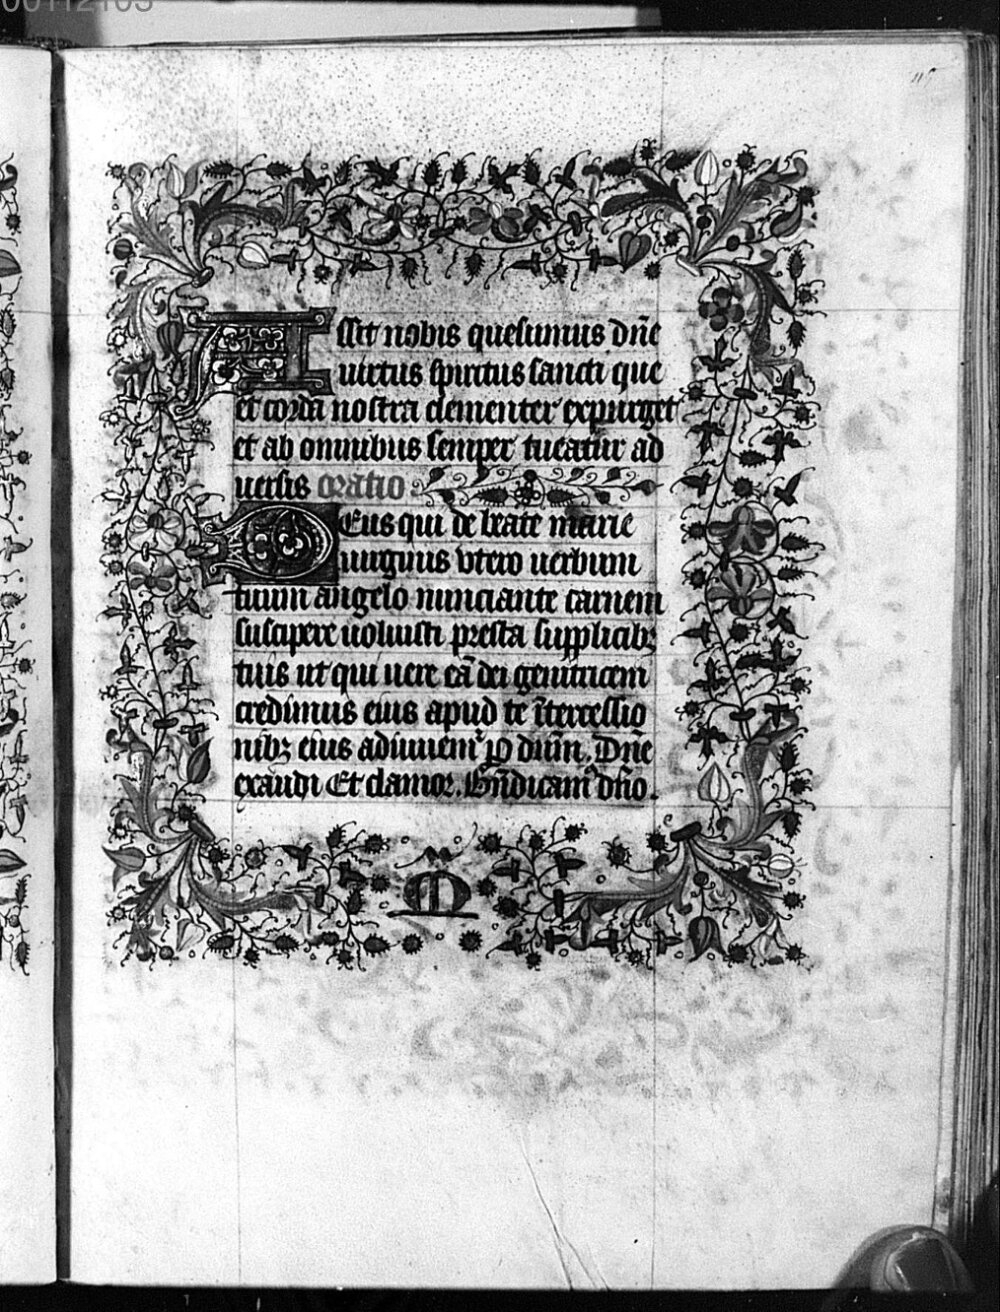 00112103
Assit nobis quesumus dn̄e
uirtus spiritus sancti que
et corda nostra clementer expurget
et ab omnibus semper tueatur ad
uersis oratio
Deus qui de beate marie
uirginis vtero uerbum
tuum angelo nunciante carnem
suscipere uoluisti presta supplicibꝫ
tuis ut qui uere eā dei genitricem
credimus eius apud te īntercessio
nibꝫ eius adiuuemꝰ P dn̄m. Dn̄e
exaudi Et clamor. Bn̄dicamꝰ dn̄o.
M